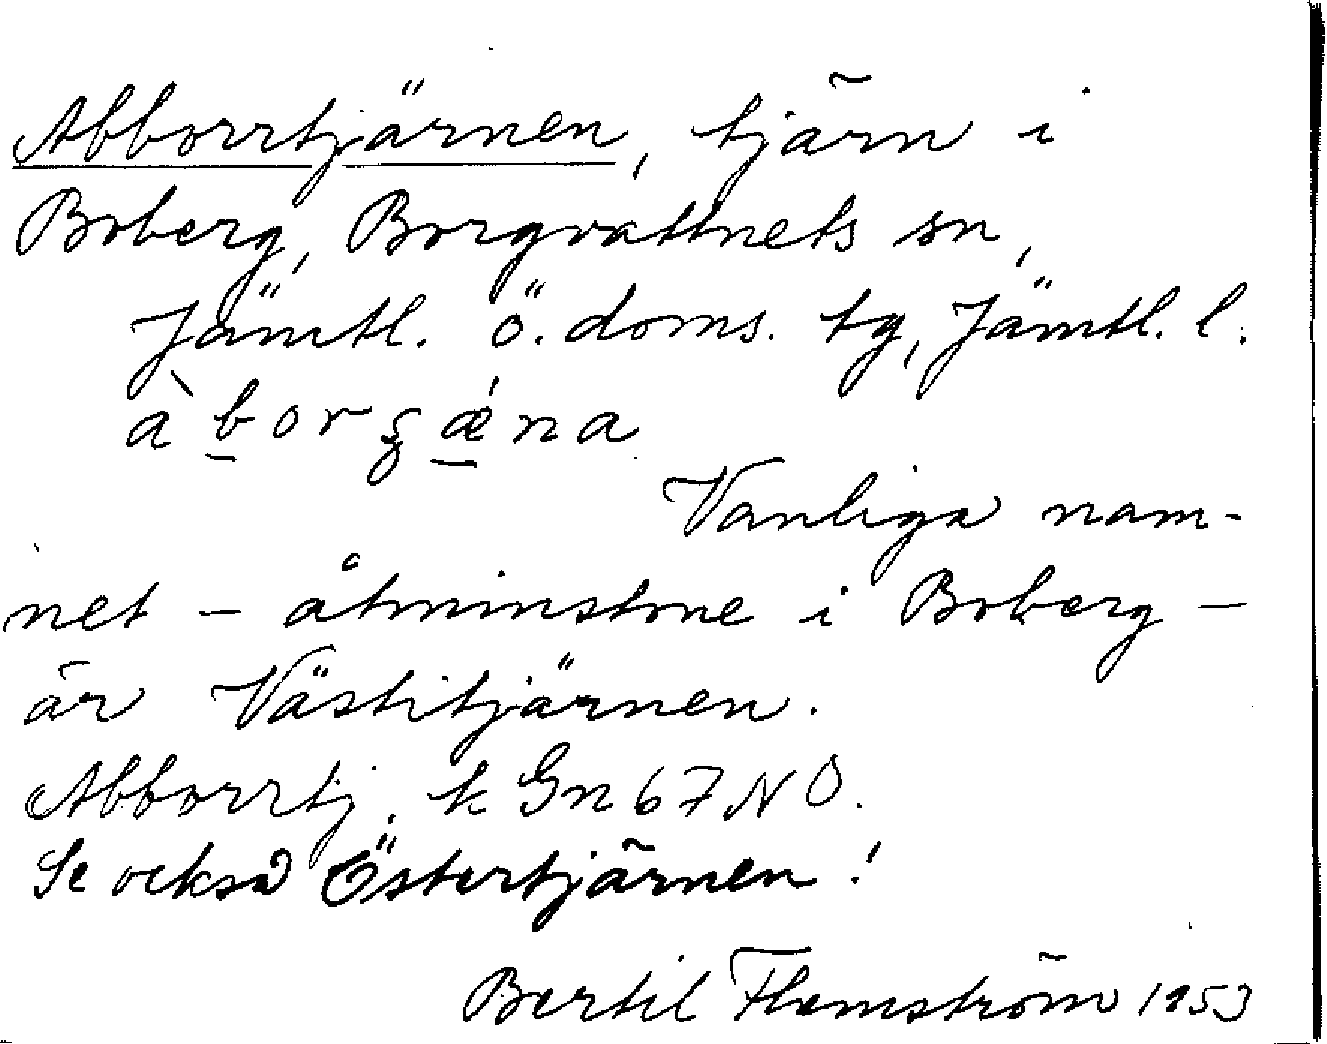 Abborrtjärnen, tjärn i
Boberg, Borgvattnets sn,
Jämtl. ö. doms. tg, Jämtl. l.
àborʂǽna
Vanliga nam-
net – åtminstone i Boberg –
är Västitjärnen.
Abborrtj. k Gn 67 NO.
Se också Östertjärnen!
Bertil Flemström 1953